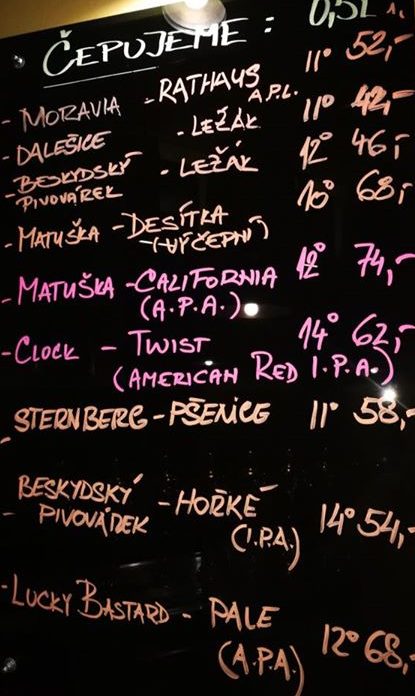 ČEPUJEME: 0,5L
- MORAVIA - RATHAUS A.P.L. 11° 52,-
- DALEŠICE - LEŽÁK 11° 42,-
- BESKYDSKÝ PIVOVÁREK - LEŽÁK 12° 46,-
- MATUŠKA - DESÍTKA 10° 68,-
(VÝČEPNÍ)
- MATUŠKA - CALIFORNIA 12° 74,-
(A.P.A.)
- CLOCK - TWIST 14° 62,-
(AMERICAN RED I.P.A.)
- STERNBERG - PŠENICE 11° 58,-
- BESKYDSKÝ PIVOVÁREK - HOŘKÉ 14° 54,-
(I.P.A.)
- LUCKY BASTARD - PALE 12° 68,-
(A.P.A.)